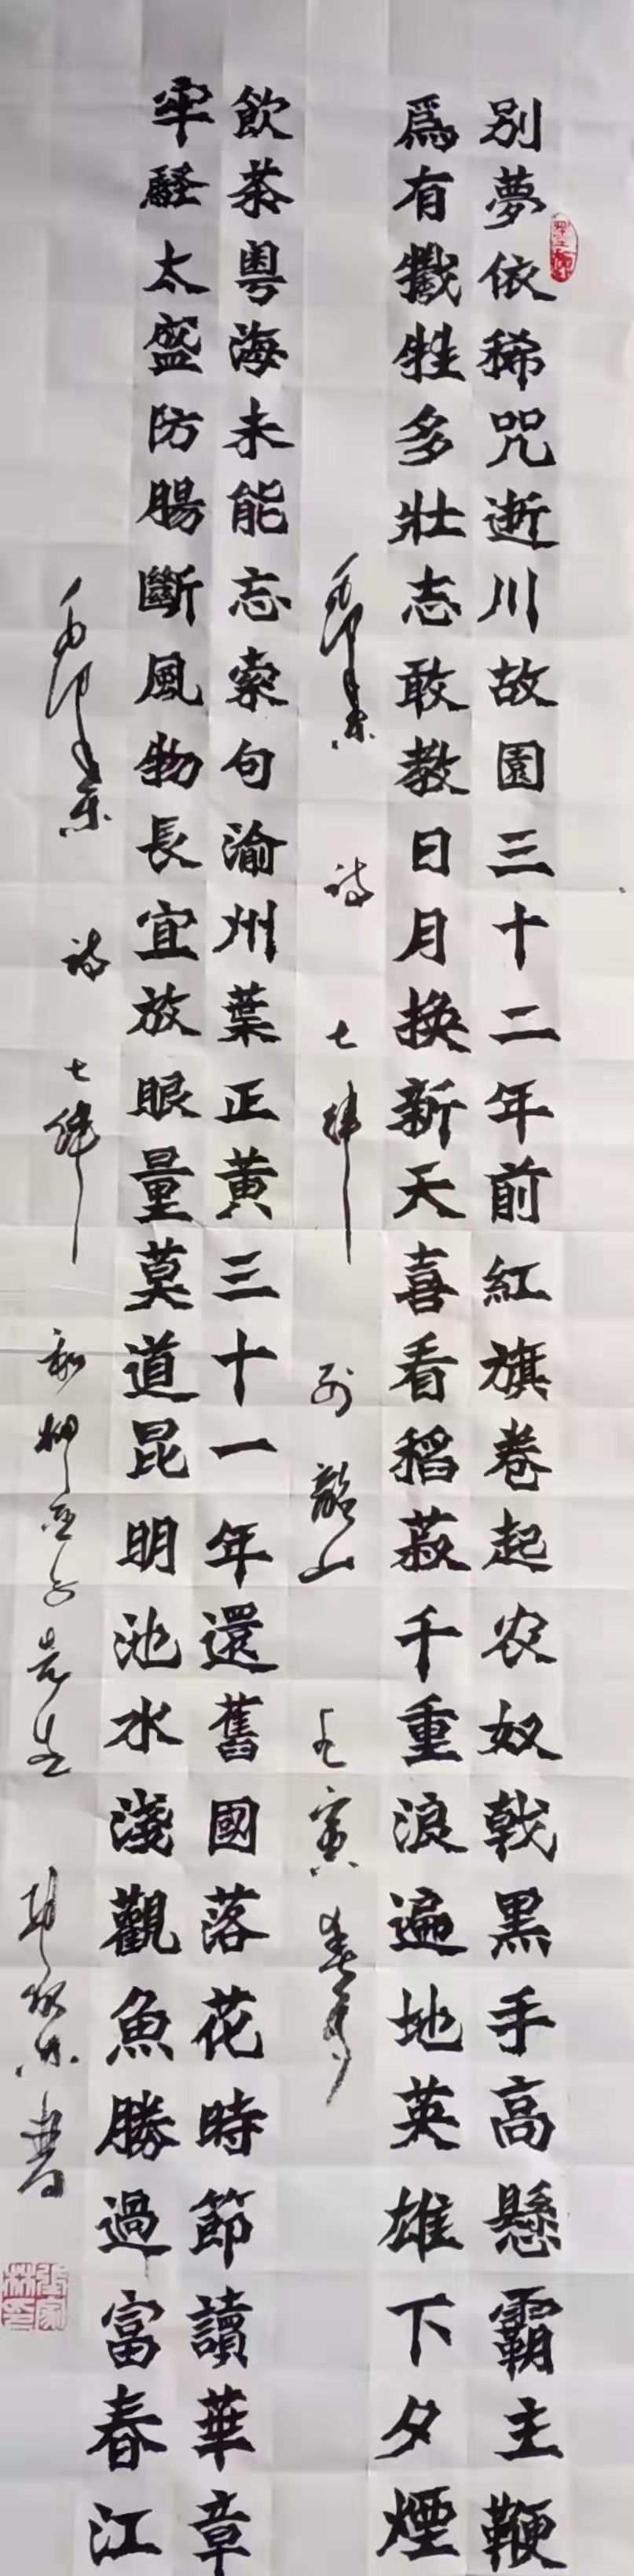 别夢依稀咒逝川故園三十二年前紅旗卷起农奴戟黑手高懸霸主鞭
爲有犧牲多壯志敢教日月换新天喜看稻菽千重浪遍地英雄下夕煙
毛泽东 诗 七律 到韶山 壬寅春月
飲茶粤海未能忘索句渝州葉正黄三十一年還舊國落花時節讀華章
牢騷太盛防腸斷風物長宜放眼量莫道昆明池水淺觀魚勝過富春江
毛泽东 诗 七律 和柳亚子先生 张家林书